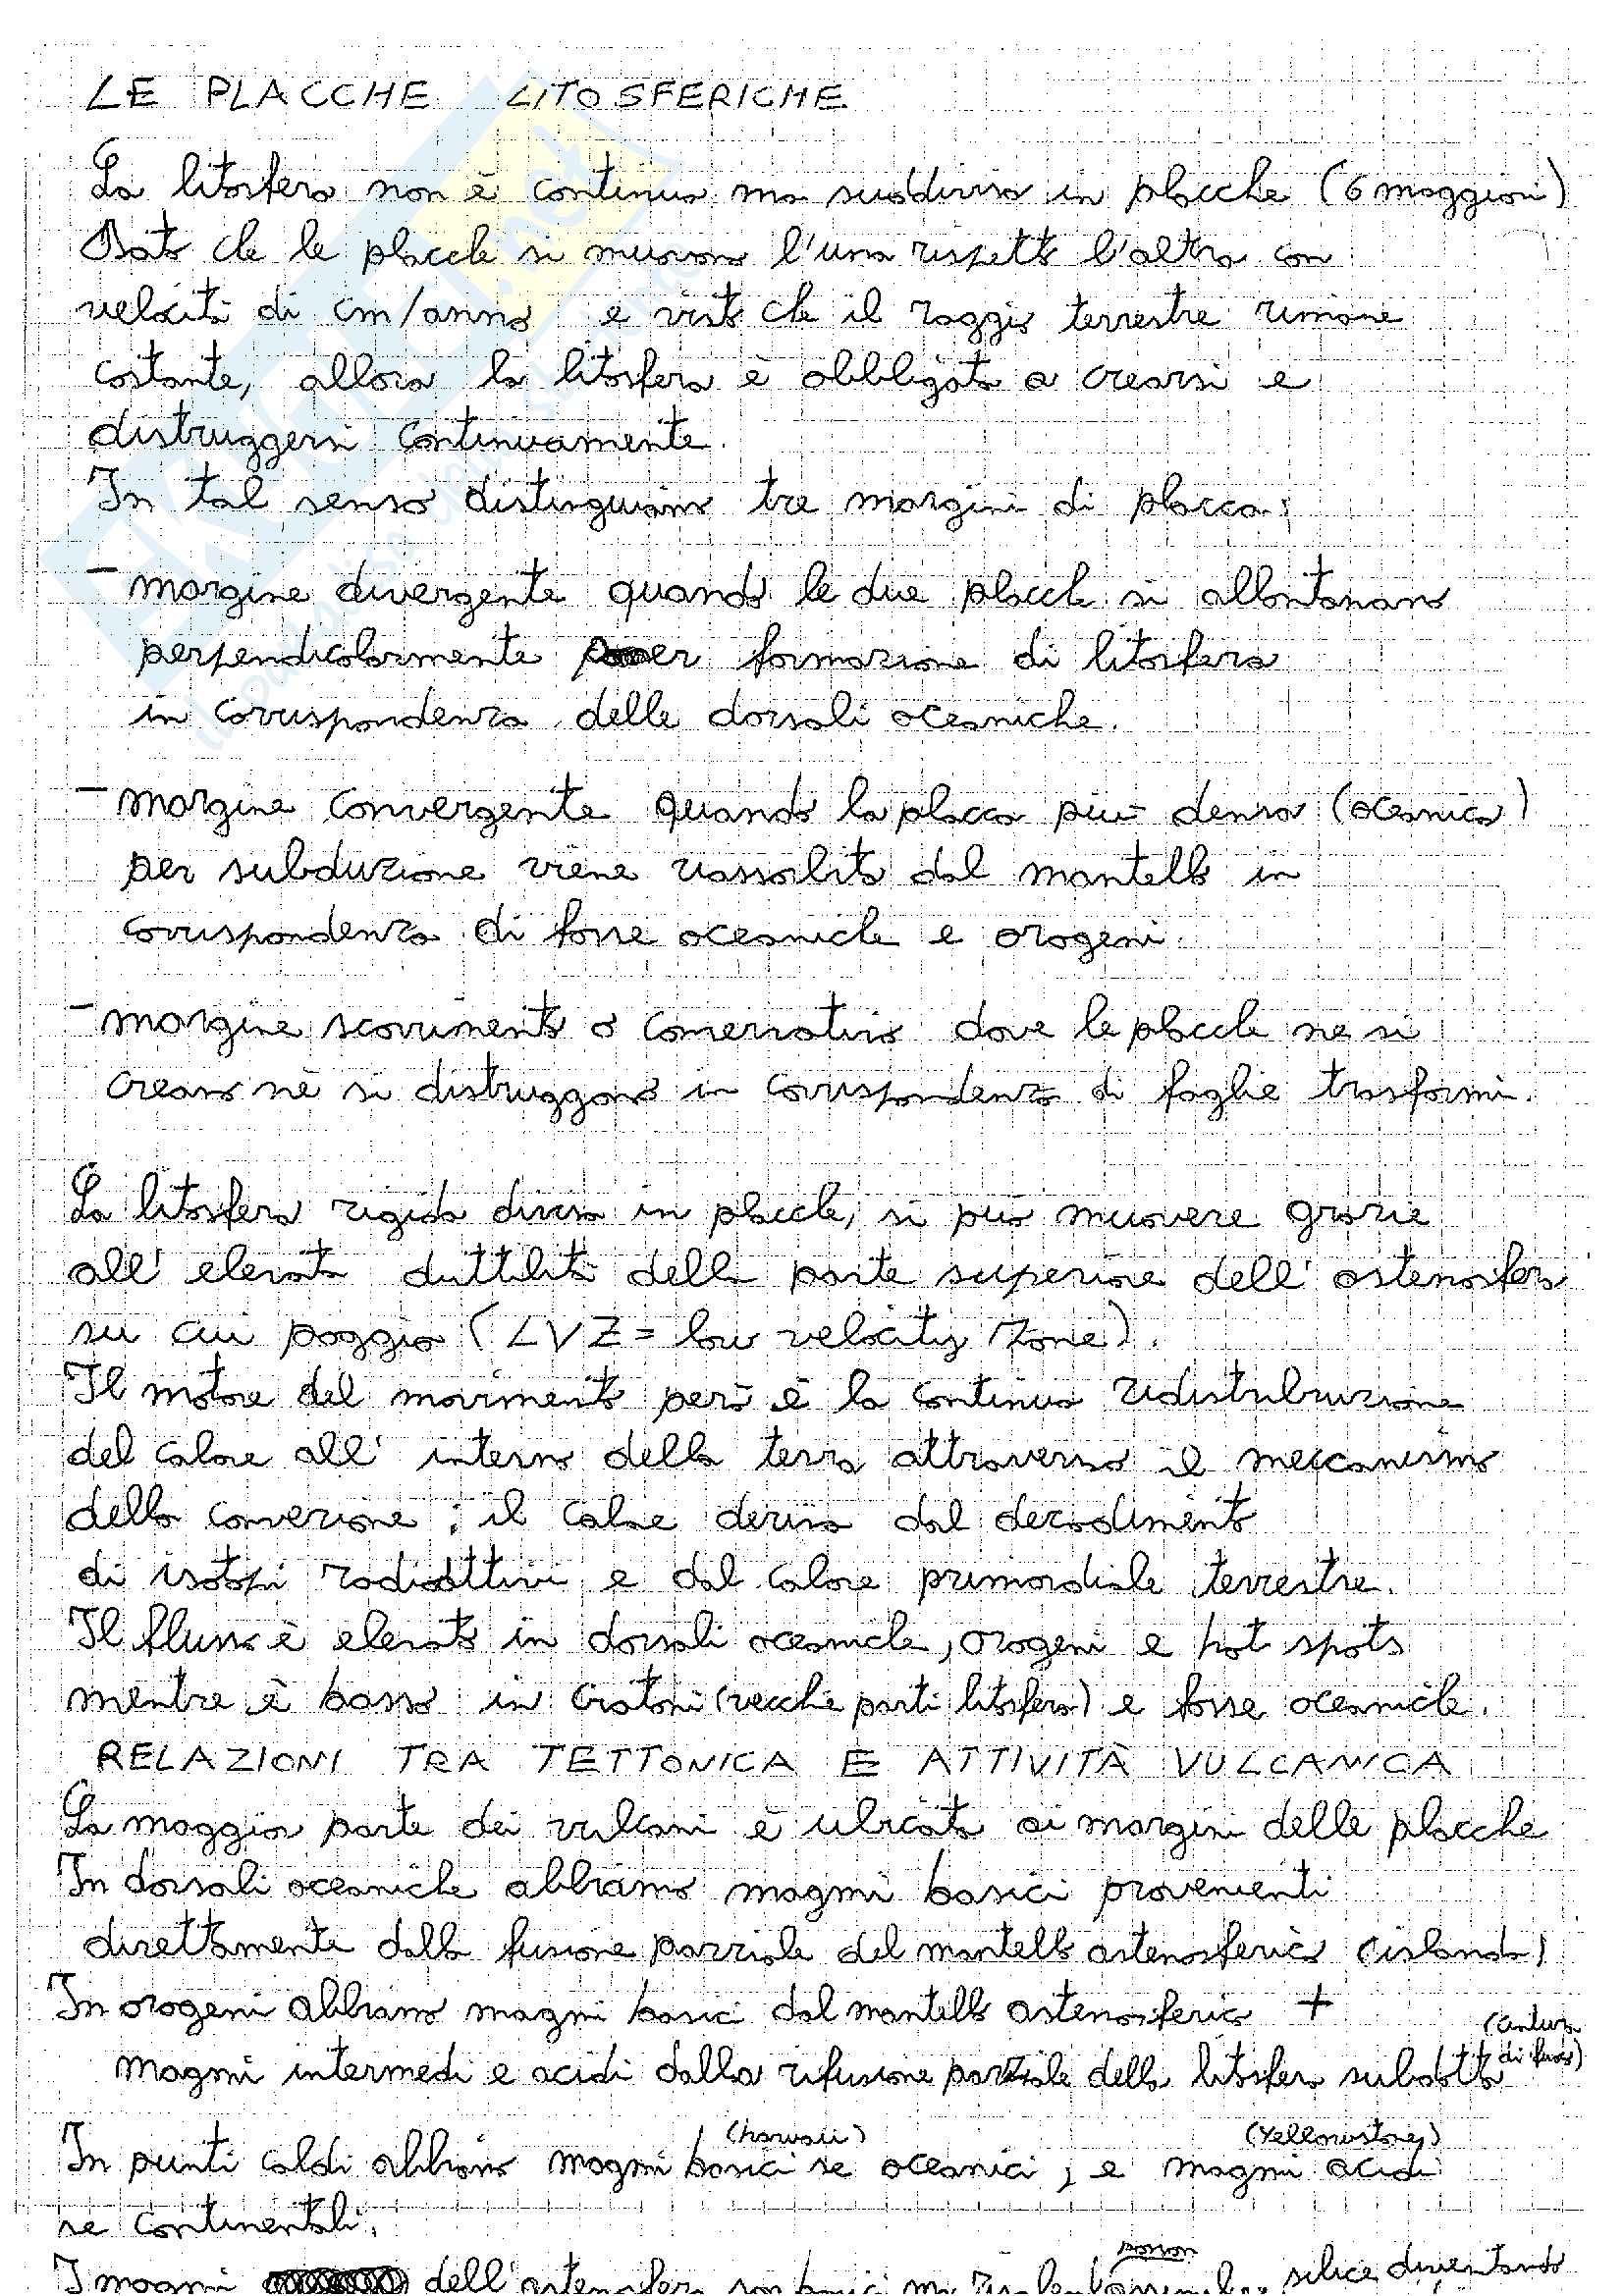 LE PLACCHE LITOSFERICHE
La litosfera non è continua ma suddivisa in placche (6 maggiori)
Dato che le placche si muovono l'una rispetto l'altra con
velocità di cm/anno e visto che il raggio terrestre rimane
costante, allora la litosfera è obbligata a crearsi e
distruggersi continuamente.
In tal senso distinguiamo tre margini di placca:
- margine divergente quando le due placche si allontanano
perpendicolarmente per formazione di litosfera
in corrispondenza delle dorsali oceaniche.
- margine convergente quando la placca più densa (oceanica)
per subduzione viene riassorbita dal mantello in
corrispondenza di fosse oceaniche e orogeni.
- margine scorrimento o conservativo dove le placche ne si
creano nè si distruggono in corrispondenza di faglie trasformi.
La litosfera rigida divisa in placche, si può muovere grazie
all'elevata duttilità della parte superiore dell'astenosfera
su cui poggia (LVZ = low velocity zone).
Il motore del movimento però è la continua ridistribuzione
del calore all'interno della terra attraverso il meccanismo
della convezione; il calore deriva dal decadimento
di isotopi radioattivi e dal calore primordiale terrestre.
Il flusso è elevato in dorsali oceaniche, orogeni e hot spots
mentre è basso in cratoni (vecchie parti litosfera) e fosse oceaniche.
RELAZIONI TRA TETTONICA E ATTIVITÀ VULCANICA
La maggior parte dei vulcani è ubicata ai margini delle placche
In dorsali oceaniche abbiamo magmi basici provenienti
direttamente dalla fusione parziale del mantello astenosferico (islanda)
In orogeni abbiamo magmi basici dal mantello astenosferico +
(cintura
di fuoco)
magmi intermedi e acidi dalla rifusione parziale della litosfera subdotta
(hawaii) (Yellowstone)
In punti caldi abbiamo magmi basici se oceanici, e magmi acidi
se continentali.
possono
I magmi dell'astenosfera son basici ma risalendo silice diventando